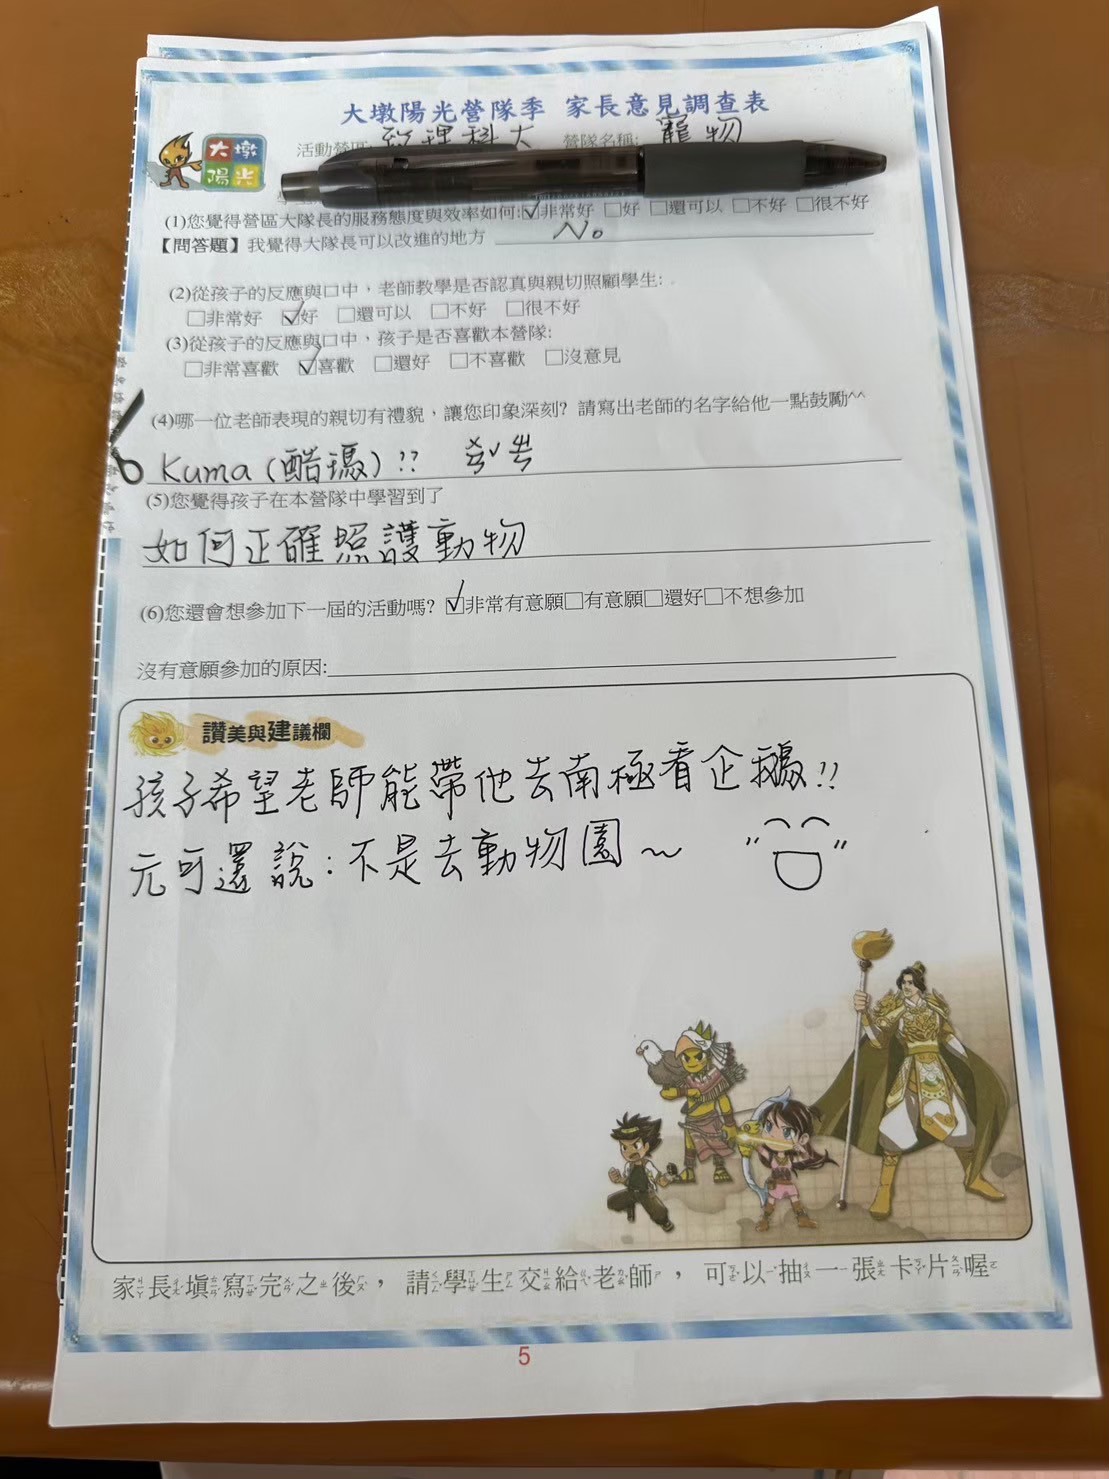 大墩陽光營隊季 家長意見調查表
大墩
陽光
活動營區: 致理科大 營隊名稱: 寵物
(1)您覺得營區大隊長的服務態度與效率如何:☑非常好 □好 □還可以 □不好 □很不好
【問答題】我覺得大隊長可以改進的地方 No
(2)從孩子的反應與口中，老師教學是否認真與親切照顧學生:
□非常好 ☑好 □還可以 □不好 □很不好
(3)從孩子的反應與口中，孩子是否喜歡本營隊:
□非常喜歡 ☑喜歡 □還好 □不喜歡 □沒意見
(4)哪一位老師表現的親切有禮貌，讓您印象深刻? 請寫出老師的名字給他一點鼓勵^^
Kuma (酷瑪)!?
(5)您覺得孩子在本營隊中學習到了
如何正確照護動物
(6)您還會想參加下一屆的活動嗎? ☑非常有意願□有意願□還好□不想參加
沒有意願參加的原因:
讚美與建議欄
孩子希望老師能帶他去南極看企鵝!!
元可還說:不是去動物園~
家長填寫完之後，請學生交給老師，可以抽一張卡片喔
5